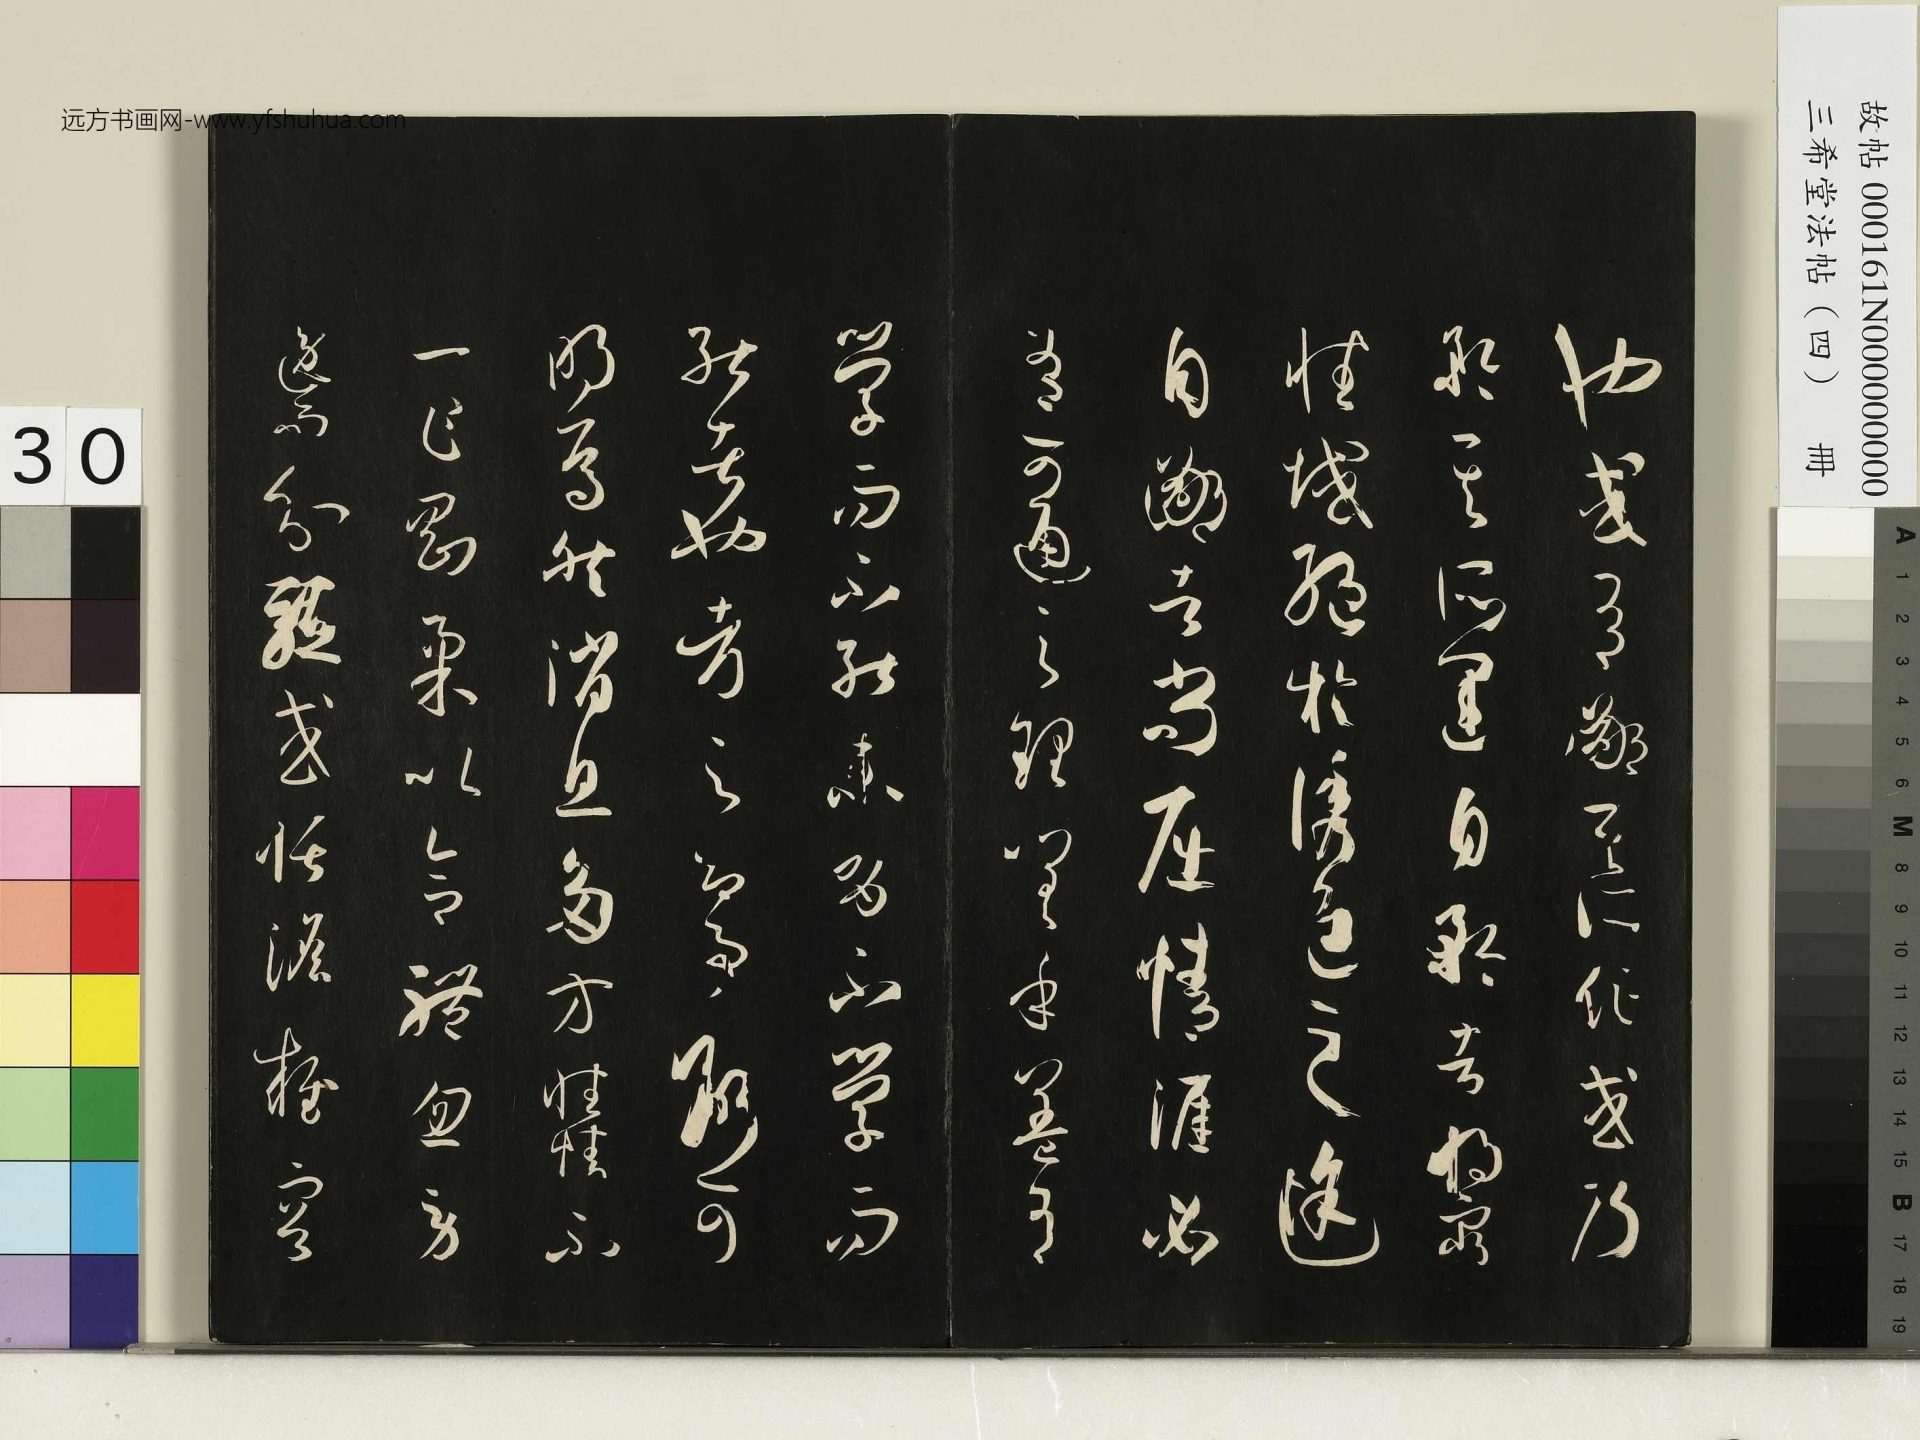 远方书画网-www.yfshuhua.com
故帖 000161N000000000
三希堂法帖（四） 冊
也或有鄙其所作或乃
矜其所運自矜者將窮
性域絕於誘進之途
自鄙者尚屈情涯必
有可通之理嗟乎蓋有
學而不能未有不學而
能者也考之即事斷可
明焉然消息多方性情不
一乍剛柔以合體忽勞
逸而分驅或恬澹雍容
30
A 1 2 3 4 5 6 M 8 9 10 11 12 13 14 15 B 17 18 19